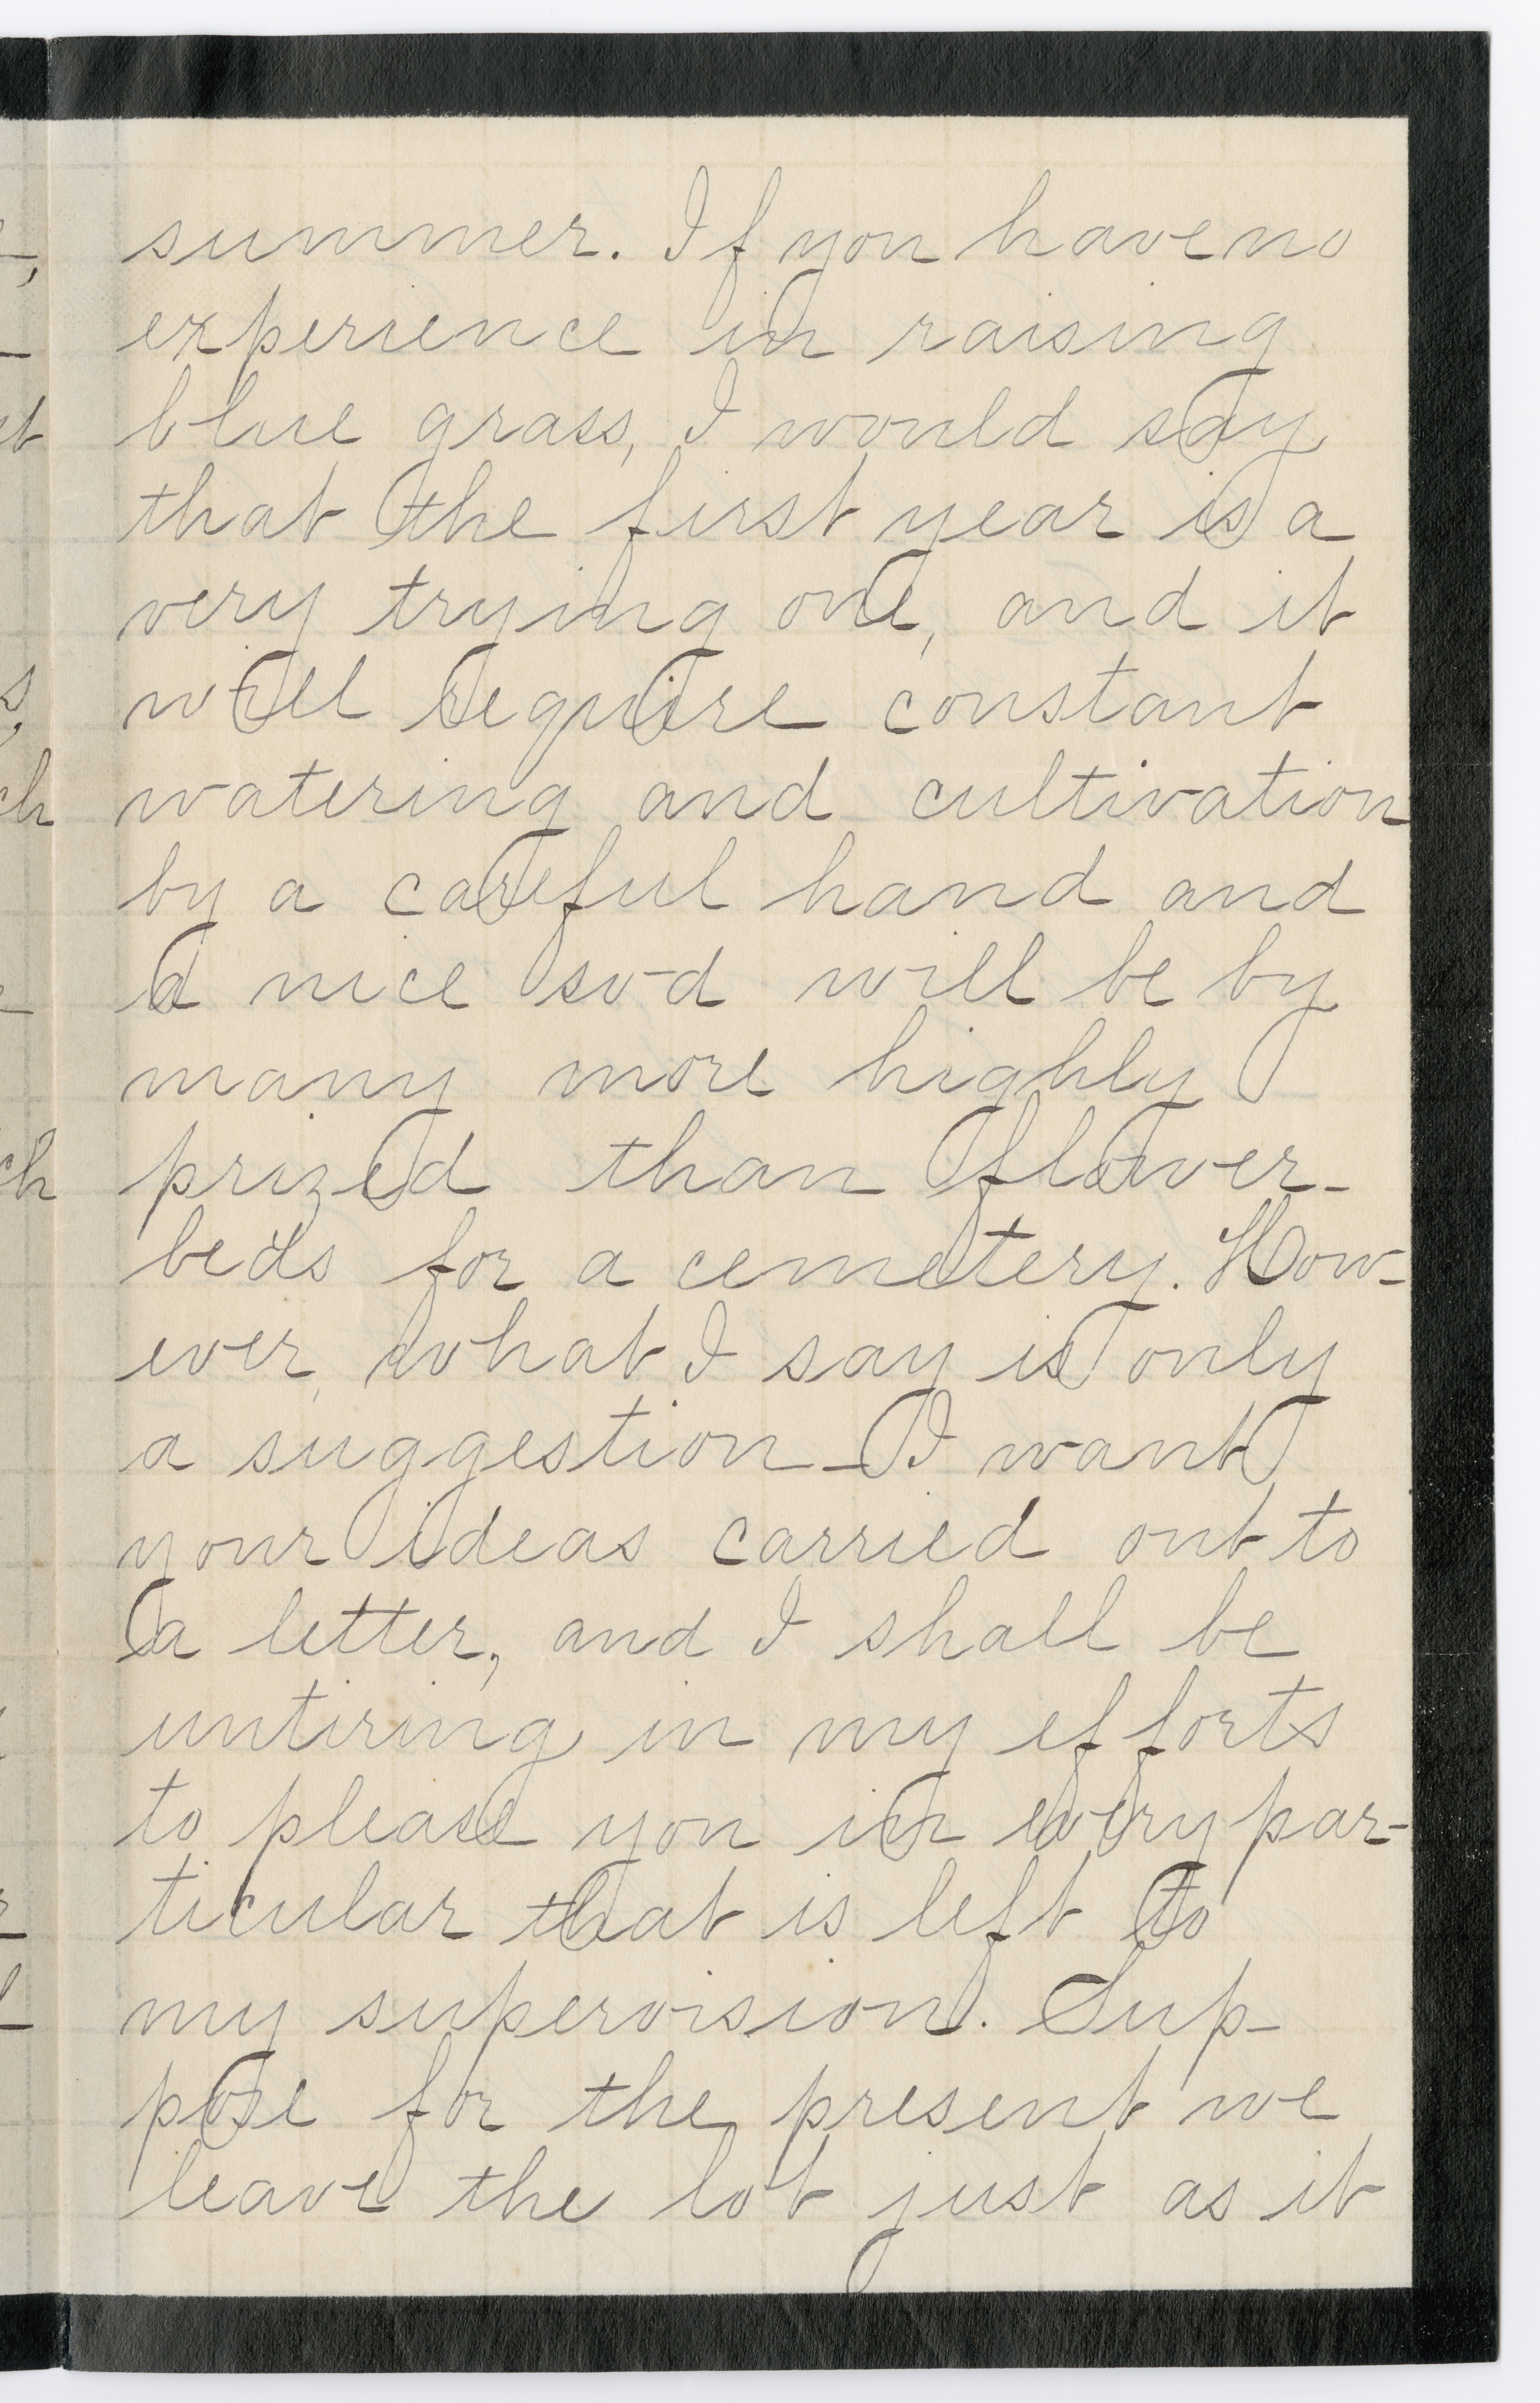 summer. If you have no
experience in raising
blue grass, I would say
that the first year is a
very trying one, and it
will require constant
watering and cultivation
by a careful hand and
a nice sod will be by
many more highly
prized than flower-
beds for a cemetery. How-
ever, what I say is only
a suggestion – I want
your ideas carried out to
a letter, and I shall be
untiring in my efforts
to please you in every par-
ticular that is left to
my supervision. Sup-
pose for the present we
leave the lot just as it